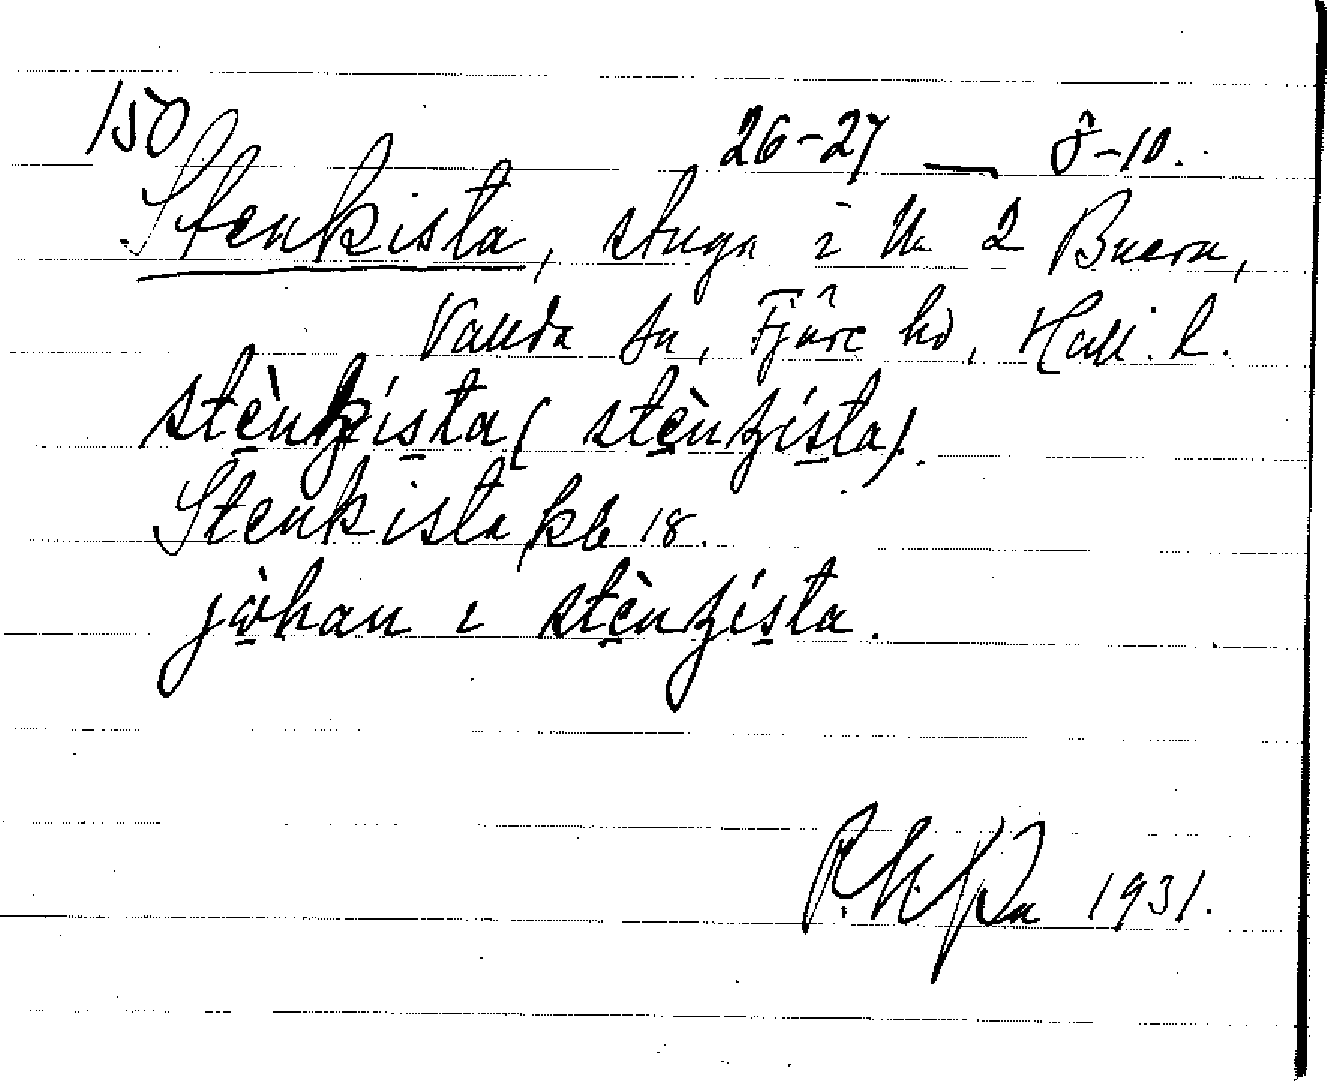 150
26-27 — 8-10.
Stenkista, stuga i n. 2 Buera,
Vallda sn, Fjäre hd, Hall. l.
stènʒista (stènʒista).
Stenkista kb 18.
jòhan i stènʒista.
1931.